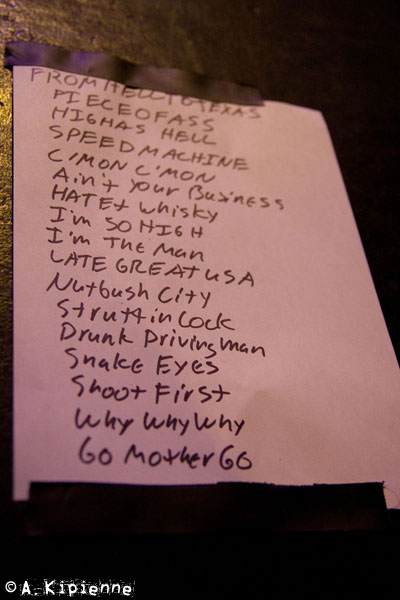 FROM HELL TO TEXAS
PIECE OF ASS
HIGH AS HELL
SPEED MACHINE
C'MON C'MON
Ain't Your Business
HATE & Whisky
I'm SO HIGH
I'm The Man
LATE GREAT USA
Nutbush City
Struttin Cock
Drunk Driving man
Snake Eyes
Shoot First
Why Why Why
Go Mother GO
© A. Kipienne